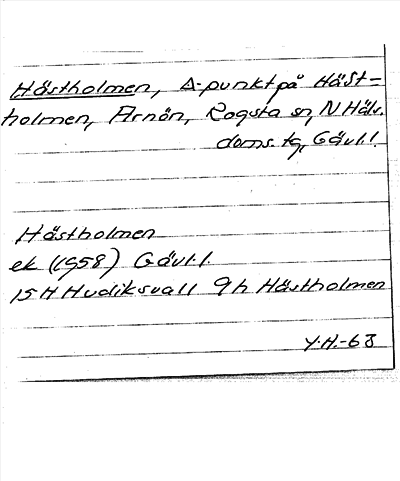 Hästholmen, Δ-punkt på Häst=
holmen, Arnön, Rogsta sn, N Häls.
doms. tg, Gävl.l.
Hästholmen
ek (1958) Gävl.l.
15 H Hudiksvall 9h Hästholmen
Y.H.-63